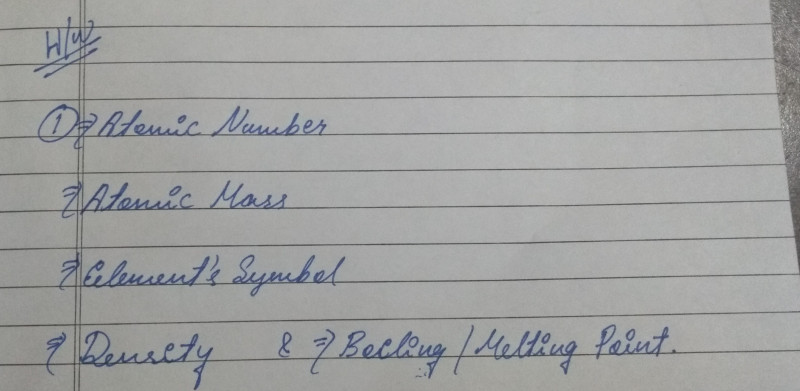 H/W
① ⇒ Atomic Number
⇒ Atomic Mass
⇒ Element's Symbol
⇒ Density & ⇒ Boiling / Melting Point.